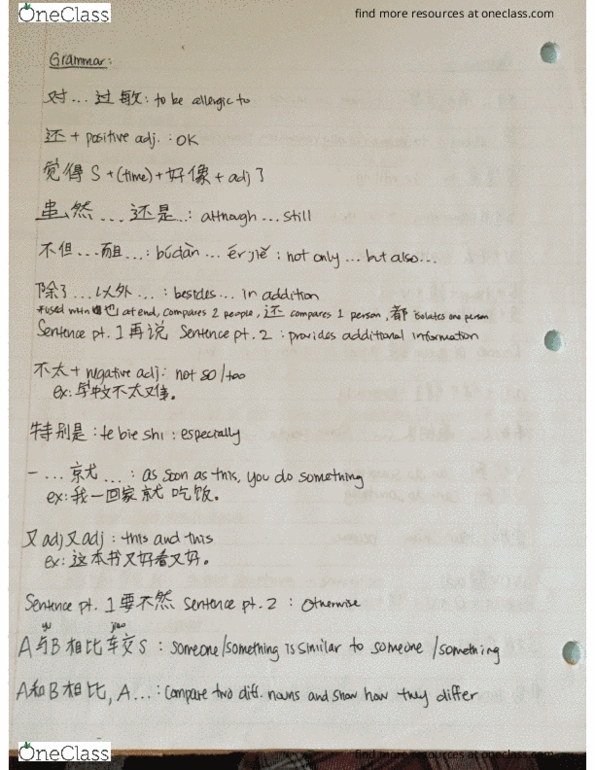 OneClass
find more resources at oneclass.com
Grammar:
对...过敏: to be allergic to
还 + positive adj. : OK
觉得 S + (time) + 好像 + adj 了
虽然 ... 还是...: although ... still
不但...而且...: búdàn ... ér jiě : not only ... but also...
除了...以外 ... : besides ... in addition
*used with 也 at end, compares 2 people, 还 compares 1 person, 都 isolates one person
Sentence pt. 1 再说 Sentence pt. 2 : provides additional information
不太 + negative adj: not so / too
ex: 学中文不太难。
特别是 : te bie shi : especially
一 ... 就 ... : as soon as this, you do something
ex: 我一回家就吃饭。
又 adj 又 adj : this and this
ex: 这本书又好看又好。
Sentence pt. 1 要不然 Sentence pt. 2 : otherwise
yu jiao
A 与 B 相比较 S : someone/something is similar to someone/something
A 和 B 相比, A... : Compare two diff. nouns and show how they differ
OneClass
find more resources at oneclass.com